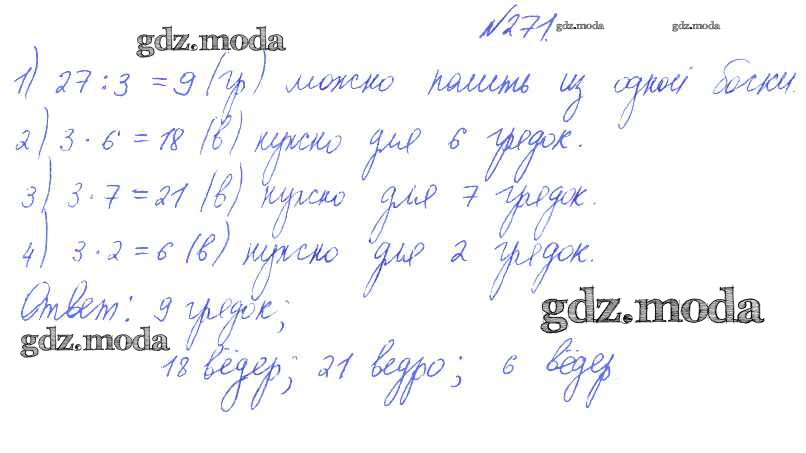 №271. gdz.moda gdz.moda
gdz.moda
1) 27 : 3 = 9 (гр) можно полить из одной бочки.
2) 3 · 6 = 18 (в) нужно для 6 грядок.
3) 3 · 7 = 21 (в) нужно для 7 грядок.
4) 3 · 2 = 6 (в) нужно для 2 грядок.
Ответ: 9 грядок;
gdz.moda
gdz.moda
18 вёдер; 21 ведро; 6 вёдер